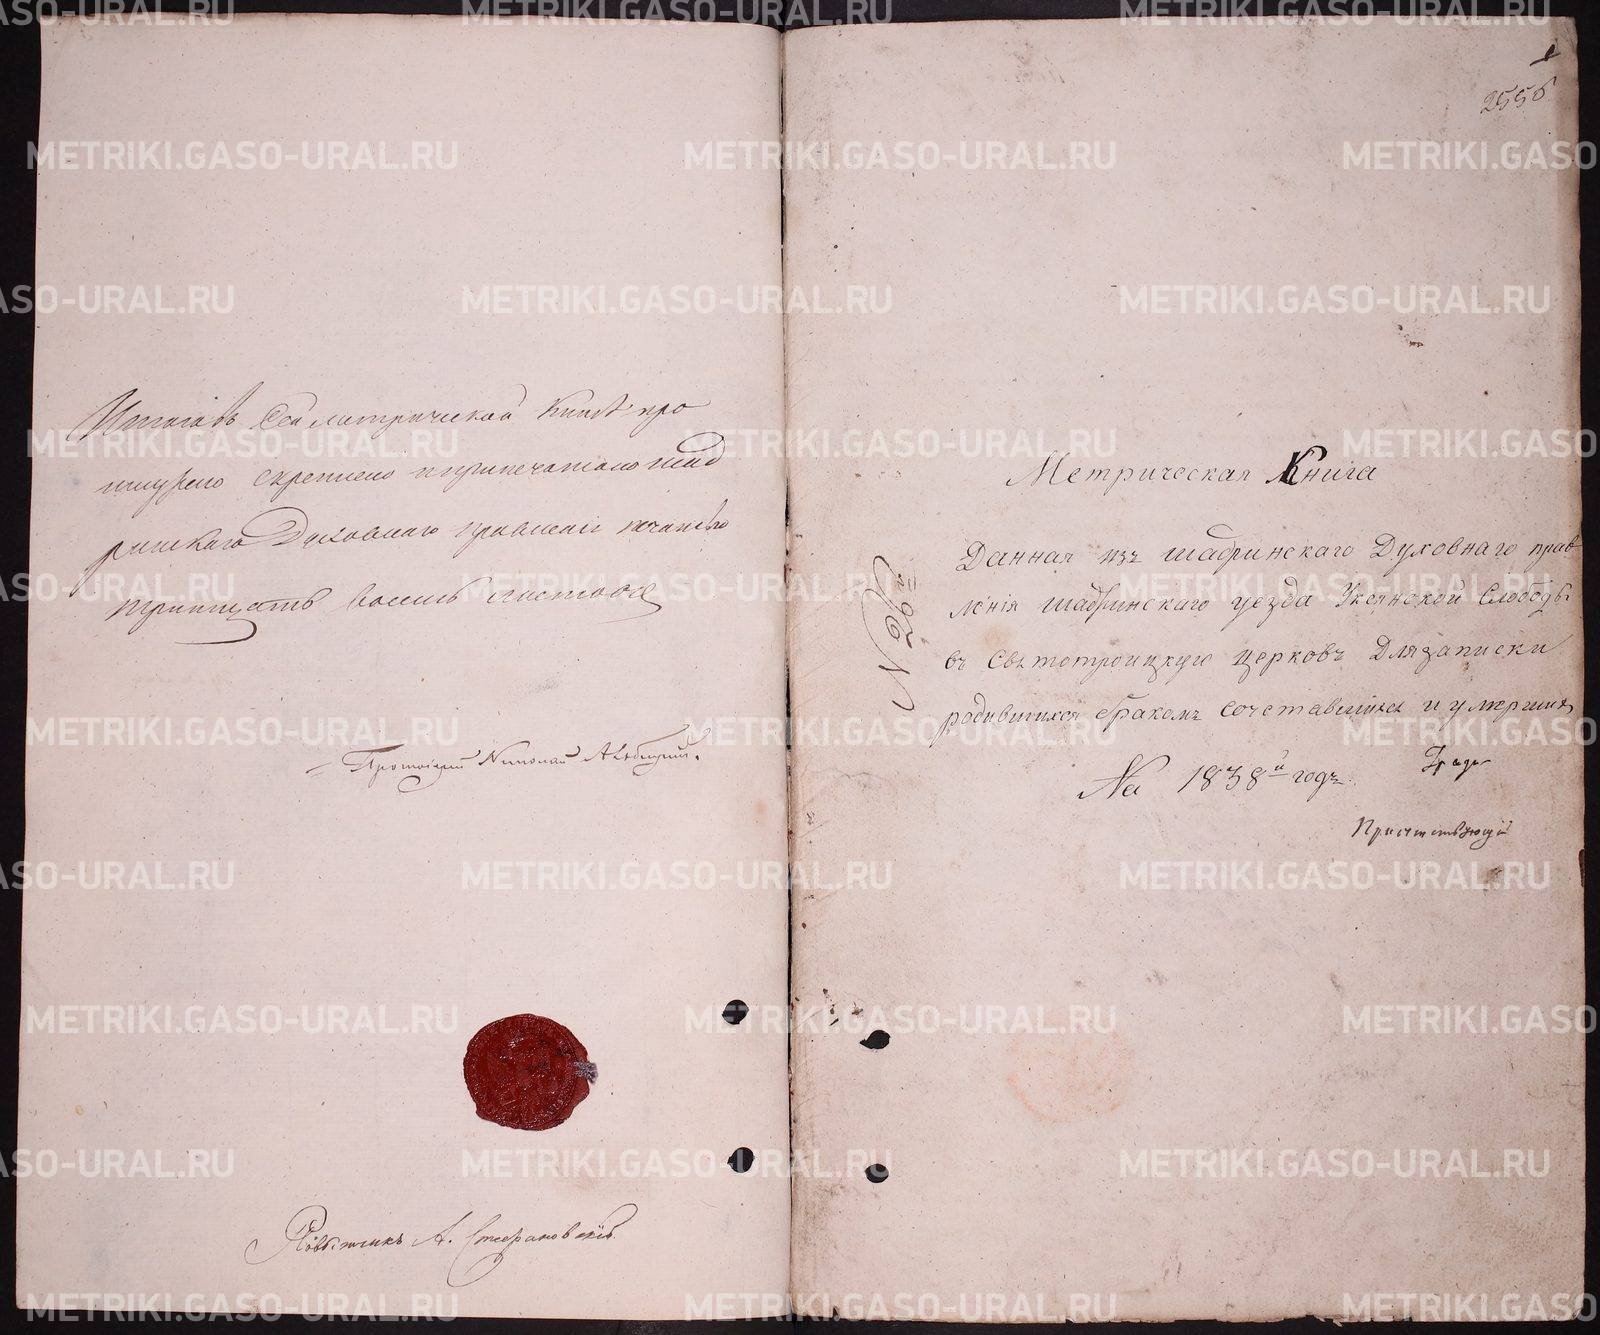 Итого въ сей метрической книгѣ про
шнурено скреплено и припечатано Шад
ринскаго Духовнаго правленія печатью
тритцать восемь листовъ
Протоіерей Николай
Повытчикъ А. Стефановскій
1
2556
Метрическая Книга
Данная изъ шадринскаго Духовнаго прав
ленія шадринскаго уезда Уксянской Слободы
въ Святотроицкую церковь Для записки
родившихся бракомъ сочетавшихся и умершихъ
На 1838й годъ.
Присутствующій
№ 26й
METRIKI.GASO-URAL.RU